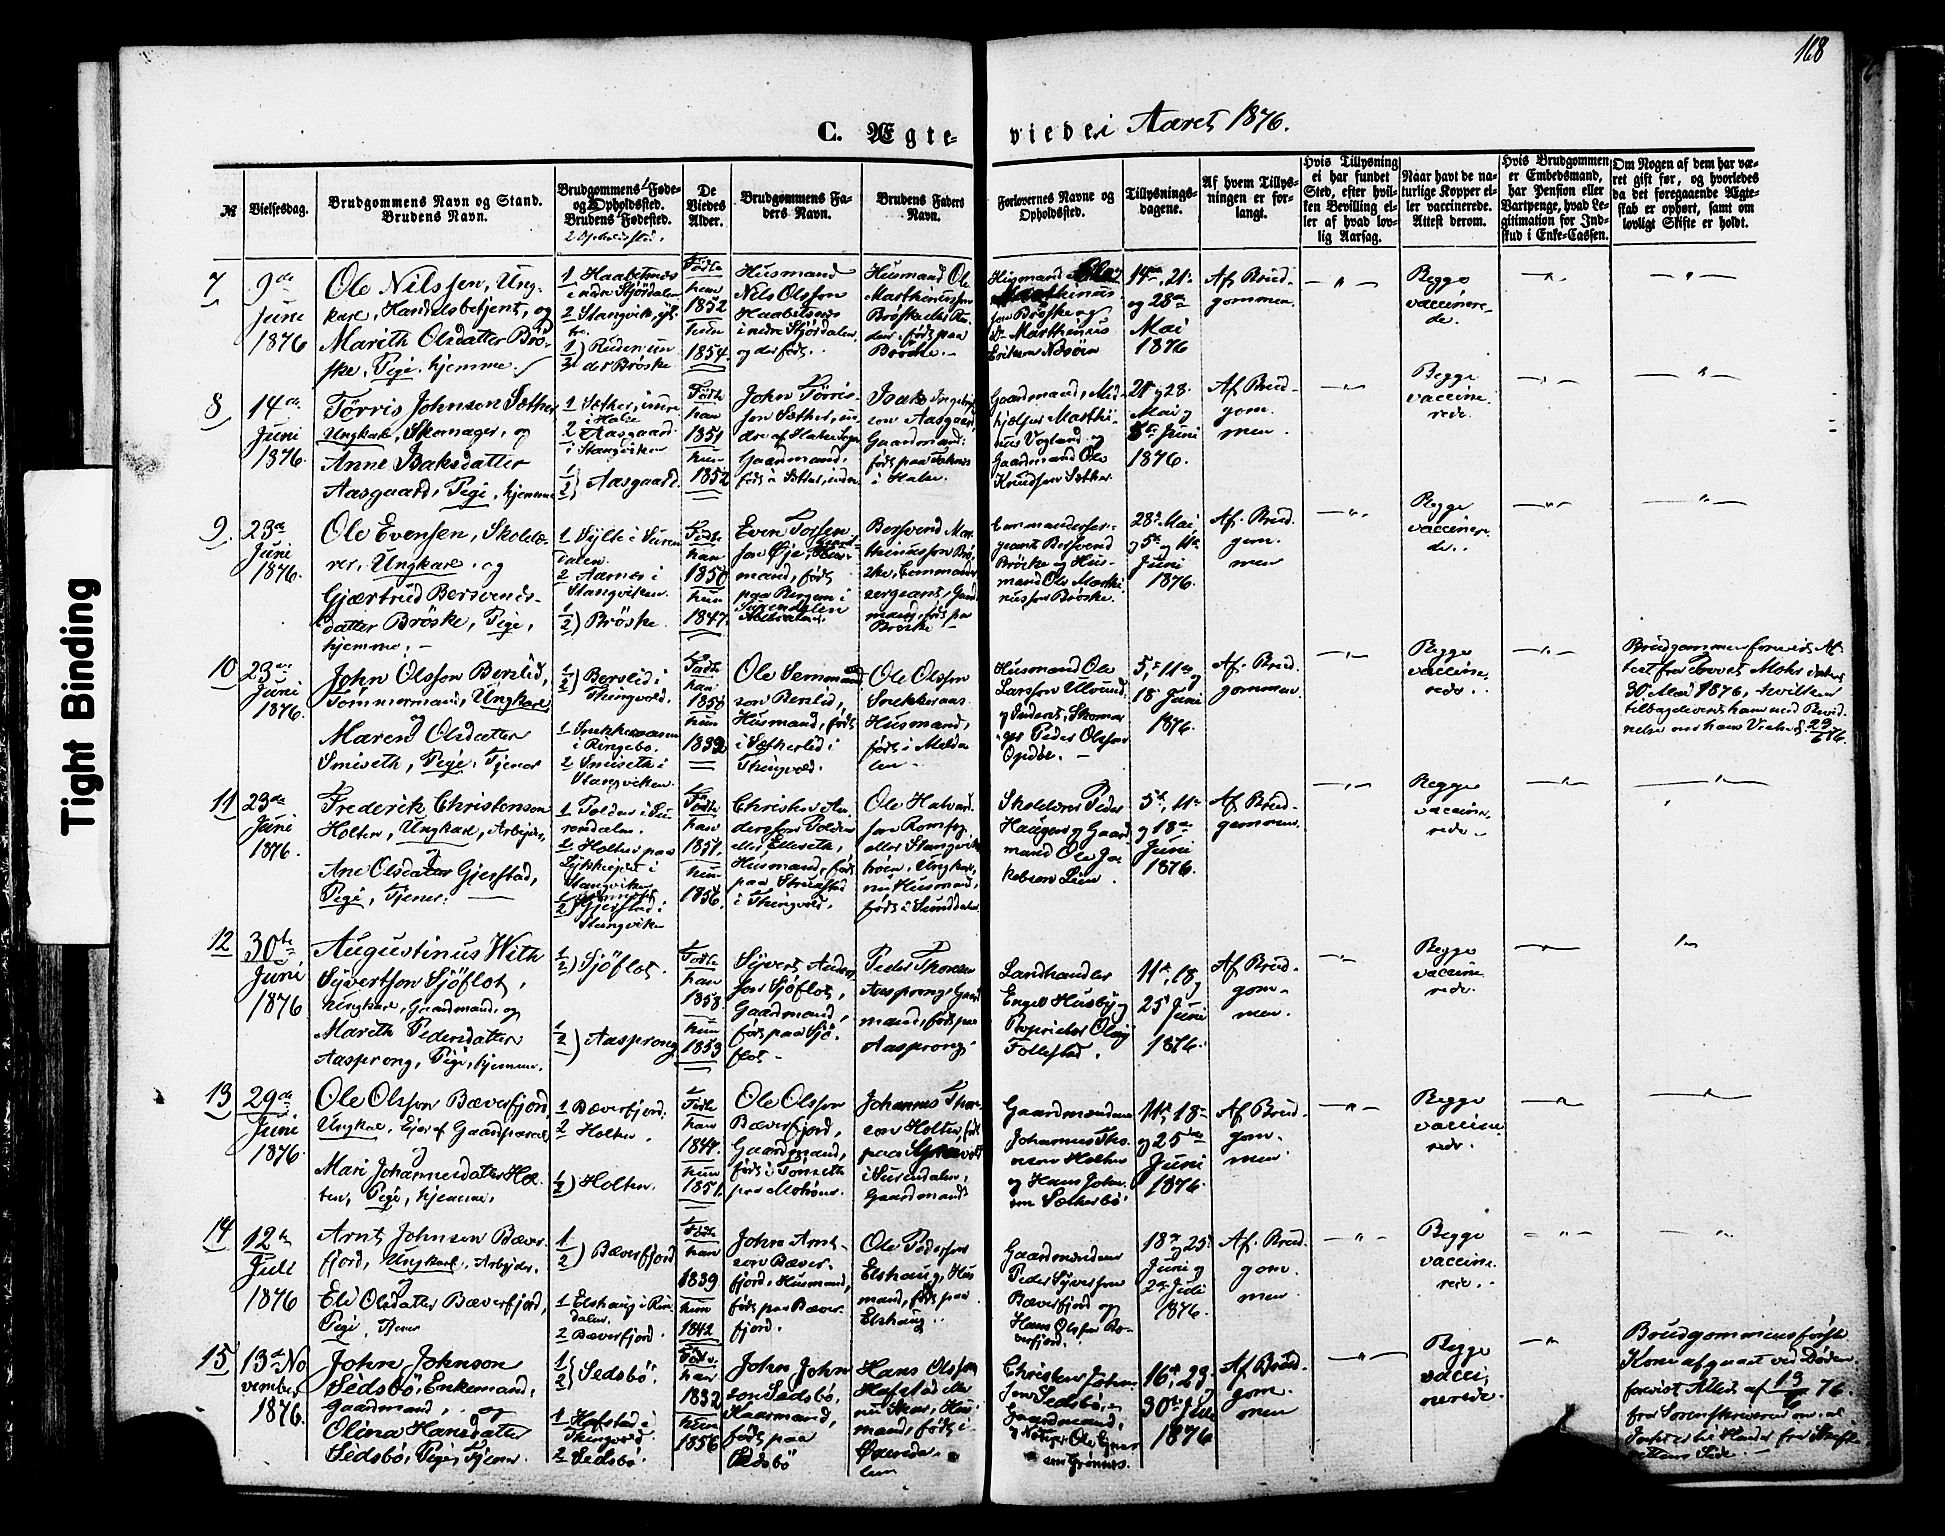 168
C. Ægte- viede i Aaret 1876.
№
Vielsesdag.
Brudgommens Navn og Stand.
Brudens Navn.
Brudgommens Føde-
og Opholdssted.
Brudens Fødested.
2 Opholdssted.
De
Viedes
Alder.
Brudgommens Fa-
ders Navn.
Brudens Faders
Navn.
Forlovernes Navne og
Opholdssted.
Tillysnings-
dagene.
Af hvem Tillys-
ningen er for-
langt.
Hvis Tillysning
ei har fundet
Sted, efter hvil-
ken Bevilling el-
ler af hvad lov-
lig Aarsag.
Naar havt de na-
turlige Kopper el-
ler vaccinerede.
Attest derom.
Hvis Brudgommen
er Embedsmand,
har Pension eller
Vartpenge, hvad Le-
gitimation for Ind-
skud i Enke-Cassen.
Om Nogen af dem har væ-
ret gift før, og hvorledes
da det foregaaende Ægte-
skab er ophørt, samt om
lovligt Skifte er holdt.
7
9de
Juni
1876
Ole Nilssen, Ung-
karl, Handelsbetjent, og
Marith Olsdatter Brö-
ske, Pige, hjemme.
1 Haabetsnæs
i nedre Stjördalen
2 Stangvik
1)
2) Bröske
Födte
han
1852
hun
1854.
Husmand
Nils Olsson
Haabetsnes
i nedre Stjördalen,
og der födt.
Husmand Ole
Marthinussen
Husmand Ole
Marthinus
sen Bröske og
Marthinus
14de, 21.
og 28de
Mai
1876
Af Brud-
gommen.
Begge
vaccinere-
de.
8
14de
Juni
1876.
Törris Johnsen Sæther
Ungkarl, Skomager, og
Anne Isaksdatter
Aasgaard, Pige, hjemme
1 Sæther, indre
i Halse
2 Aasgaard
i Stangviken
1)
2) Aasgaard.
Födte
han
1851
hun
1852
John Törris-
sen Sæther, in-
dre af Halse Sogn
Gaardmand,
födt i Sæther, indre
Gaardmand:
i Halse.
Gaardmand, Med-
hjelper Marthi-
nus Vogland og
Gaardmand Ole
Knudsen Sæther
21 og 28
Mai og
5te Juni
1876.
Af Brud-
gom-
men.
Begge
vaccine-
rede.
9.
23de
Juni
1876.
Ole Evensen, Skolelæ-
rer, Ungkarl, og
Gjærtrud Bersvends-
datter Bröske, Pige,
hjemme. —
1 Sylte i Suren-
dalen.
2 Aarnes i
Stangviken.
1)
2) Bröske.
Födte
han
1850
hun
1847.
Even Torsten-
sen Öje,
mand, födt
paa Bergem i
Surendalen
Bersvend Mar-
thinussen Brö-
ske, Commander-
sergeant, Gaard
mand, födt paa
Bröske —
Commanderser-
geant Bersvend
Bröske og Hus-
mand Ole Marthi-
nussen Bröske.
28de Mai
og 5te og 11te
Juni
1876.
Af Brud-
gom-
men
Begge
vaccinere-
de.
10
23de
Juni
1876.
John Olsson Berslid,
Tömmermand, Ungkarl
og
Maren Olsdatter
Smiseth, Pige, Tjener
1)
2) Berslid i
Thingvold.
1
i Ringebo.
2 Smiseth i
Stangviken.
Födte
han
1850
hun
1832
Ole
son Berslid,
Husmand, födt
i Sætherlid i
Thingvold.
Ole Olsson
Husmand,
födt i Melda-
len —
Husmand Ole
Larsson Ulvund
Peder Olsson
Opdöl. —
5te, 11te og
18 Juni
1876.
Af Brud-
gommen.
Begge
vaccine-
rede.
Brudgommen foreviste At-
test fra Provst Mohr dateret
30 Mai 1876, hvilken
23/6 76.
11
23de
Juni
1876.
Frederik Christensen
Holten, Ungkarl, Arbejder,
og
Ane Olsdatter Gjerstad,
Pige, Tjener: —
1 Polden i Su-
rendalen.
2 Holten paa
i
Stangviken
2) Gjerstad i
Stangviken
Födte
han
1851,
hun
1856.
Christen An-
dersson Polden
eller Elleseth,
Husmand, födt
paa
i Thingvold.
Ole Halvard-
sen Romfog
eller Stangvik-
höen, Ungkarl,
nu Husmand,
födt i Sunddalen
Skolelærer Peder
Haugen og Gaard-
mand Ole Ja-
kobsen Lien.
5te, 11te
og 18de
Juni
1876.
Af Brud-
gommen.
Begge
vaccine-
rede —
12
30te
Juni
1876
Augustinus With
Syvertsen Sjöflot,
Ungkarl, Gaardmand, og
Marith Pedersdatter
Aasprong, Pige, hjemme.
1)
2) Sjöflot.
1)
2) Aasprong
Födte
han
1853.
hun
1853
Syvert Anders-
sen Sjöflot,
Gaardmand,
födt paa Sjö-
flot —
Peder Thoresen
Aasprong, Gaard-
mand, födt paa
Aasprong.
Landhandler
Engel Husby og
Proprietær Olaus
Follestad.
11te, 18 og
25 Juni
1876.
Af Brud-
gom-
men.
Begge
vaccine-
rede.
13
29de
Juni
1876.
Ole Olsson Bæverfjord
Ungkarl, Ejer af Gaardparcel,
og
Mari Johannesdatter Hol-
ten, Pige, hjemme.
1 Bæverfjord.
2 Holten.
1)
2) Holten.
Födte
han
1844.
hun
1851.
Ole Olsson
Bæverfjord,
Gaardmand,
födt i Tönseth
paa
Johannes Tho-
resen Holten, födt
paa
i Surendalen,
Gaardmand
Gaardmændene
Johannes Tho-
resen Holten
og Hans John-
sen Sæterbö
11te, 18de
og 25de
Juni
1876.
Af Brud-
gom-
men.
Begge
vaccine-
rede.
14
12te
Juli
1876
Arnt Johnsen Bæver-
fjord, Ungkarl, Arbejder.
og
Eli Olsdatter Bæverfjord,
Pige, Tjener
1)
2) Bæverfjord
1 Elshaug i Rin-
dalen.
2 Bæverfjord.
Födte
han
1839
hun
1842
John Arnt-
sen Bæver-
fjord, Husmand,
födt paa Bæver-
fjord.
Ole Pedersen
Elshaug, Hus-
mand, födt paa
Elshaug.
Gaardmændene
Peder Syvertsen
Bæverfjord og
Hans Olsson Bæ-
verfjord.
18de, 25.
Juni og
2den Juli
1876.
Af Brud-
gom-
men.
Begge
vaccine-
rede.
15
13de No-
vember
1876.
John Johnson
Sedsbö, Enkemand,
Gaardmand, og
Olina Hansdatter
Sedsbö, Pige, Tjener.
1)
2) Sedsbö.
1 Hafstad i
Thingvold.
2 Sedsbö.
Födte
han
1832
hun
1856
John John-
son Sedsbö,
Kaarmand,
födt paa
Sedsbö
Hans Olsson
Hafstad eller
mand, födt i
len
Christen John-
sen Sedsbö,
Gaardmand,
16de, 23.
30te Juli
1876
Af Brud-
gom-
men
Begge
vacci-
nerede.
Brudgommens förste
Kone afgaaet ved Döden
forevist Attest af 13/6 76.
fra Sorenskriveren om, at
Tight Binding